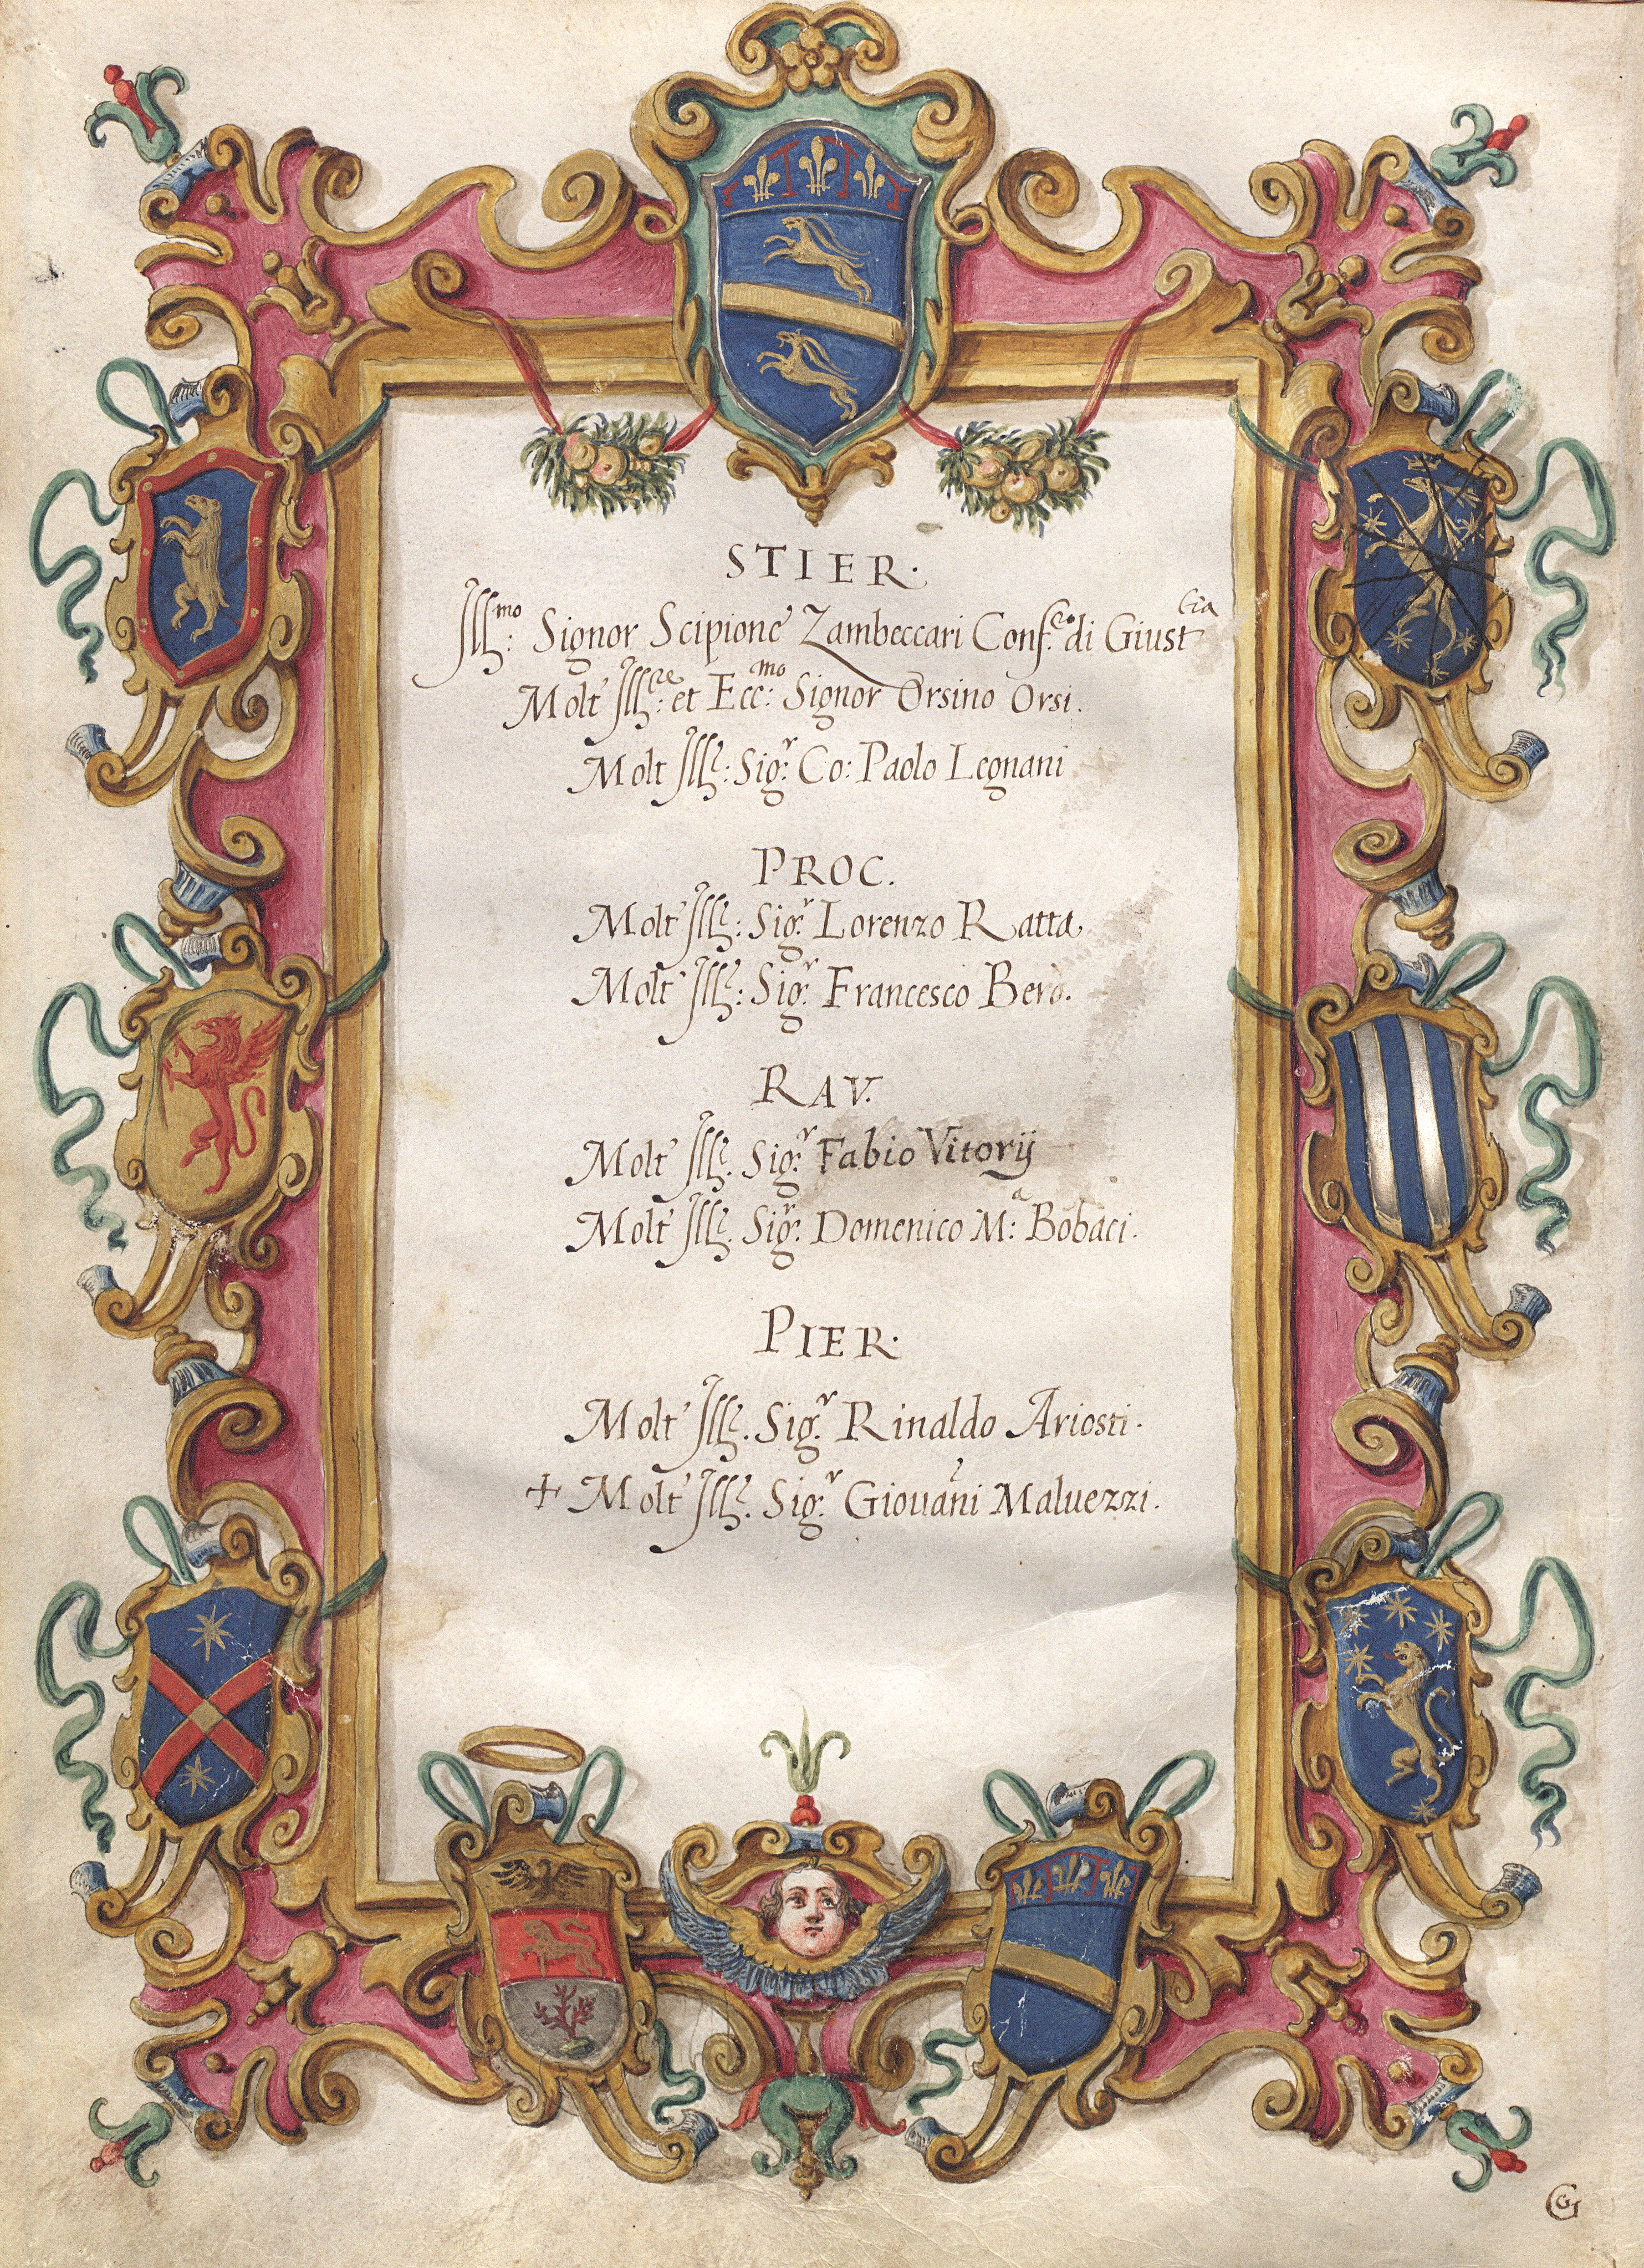 STIER.
Ill.mo: Signor Scipione Zambeccari Conf.ro di Giust.tia
Molt' Ill.re: et Ecc.mo: Signor Orsino Orsi.
Molt Ill.e: Sig.r: Co: Paolo Legnani
PROC.
Molt' Ill.e: Sig.r Lorenzo Ratta.
Molt' Ill.e: Sig.r Francesco Berò.
RAV.
Molt' Ill.e. Sig.r Fabio Vitorÿ
Molt' Ill.e. Sig.r Domenico M.a: Bobaci.
PIER.
Molt' Ill.e. Sig.r Rinaldo Ariosti.
+ Molt' Ill.e. Sig.r Giouãni Maluezzi.